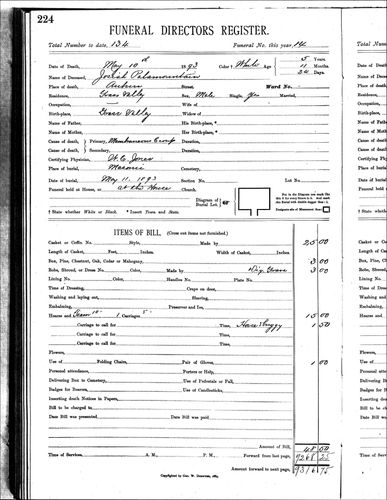 224
FUNERAL DIRECTORS REGISTER.
Total Number to date, 134 Funeral No. this year, 14
Date of Death, May 10th 1893 Color † White Age 5 Years.
11 Months.
Name of Deceased, Josiah 24 Days.
Place of death, Auburn Street Ward No.
Residence, Grass Valley Sex, Male Single, Yes Married,
Occupation, Wife of
Birthplace, Grass Valley Widow of
Name of Father, His Birth-place, *
Name of Mother, Her Birth-place, *
Cause of death, Primary, Membranous Croup Duration,
Cause of death, Secondary, Duration,
Certifying Physician, W.C. Jones
Place of burial, Masonic Cemetery,
Date of burial, May 11, 1893 Section No. Lot No.
Funeral held at House, or at the House
Diagram of Burial Lot.
Put in the Diagram you mark like this for every Grave in it. And mark this Burial with double cross thus X.
Designate site of Monument thus
† State whether White or Black. * Insert Town and State.
ITEMS OF BILL. (Cross out items not furnished.)
Casket or Coffin No. Style, Made by 25 00
Length of Casket, Feet, Inches. Width of Casket, Inches.
Box, Pine, Chestnut, Oak, Cedar or Mahogany, 3 00
Robe, Shroud, or Dress No. Color, Made by Dig Grave 3 00
Lining No. Color, Handles No. Plate No.
Time of Dressing, Crape on door,
Washing and laying out, Shaving,
Embalming, Preserved and Ice,
Hearse and Team 10- 1 Carriages 5- 15 00
Carriage to call for Time, Horse Buggy 1 50
Carriage to call for Time,
Carriage to call for Time,
Flowers,
Use of Folding Chairs, Pair of Gloves, 1 00
Personal attendance, Porters or Help,
Delivering Box to Cemetery, Use of Pedestals or Pall,
Badges for Bearers, Use of Candlesticks,
Inserting Death Notices in Papers,
Bill to be charged to
Date Bill was presented Date Bill was paid
Amount of Bill, 48 50
Time of Services, A. M., P. M., Forward from last page, 9268 25
Amount forward to next page, 9316 75